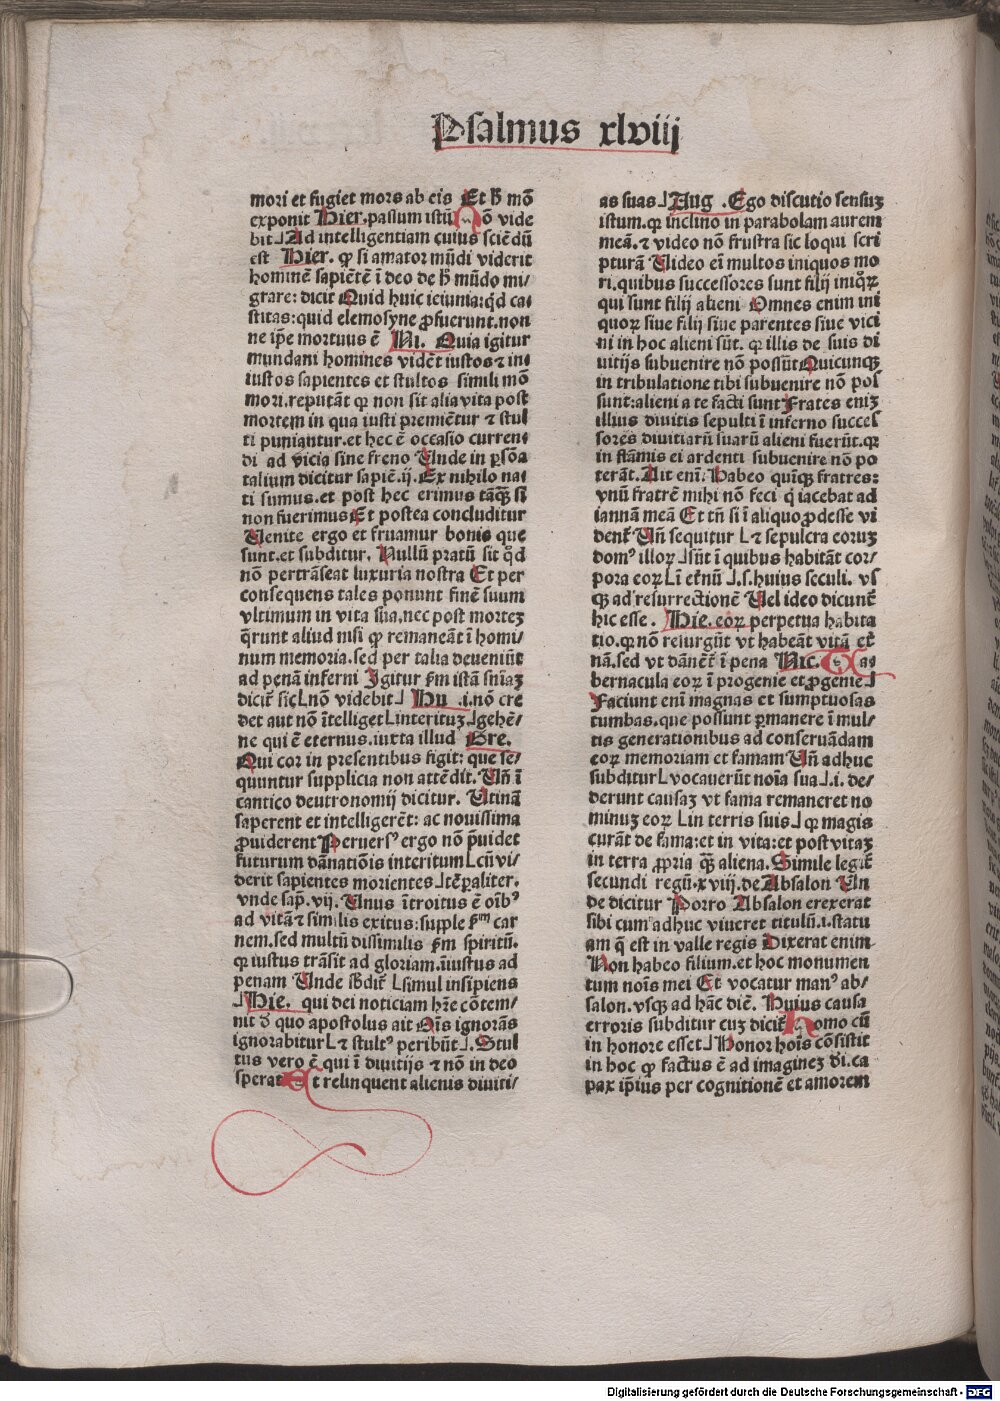 Psalmus xlviij
mori et fugiet mors ab eis Et h̄ mō
exponit Hier. passum istū Nō vide
bit⅃ Ad intelligentiam cuius sciēdū
est Hier. ꝙ si amator mūdi viderit
hominē sapiētē i deo de h̄ mūdo mi⸗
grare: dicit Quid huic ieiunia: qd̄ ca⸗
stitas: quid elemosyne ꝓfuerunt. non
ne ip̄e mortuus ē Ni. Quia igitur
mundani homines vidēt iustos ⁊ in⸗
iustos sapientes et stultos simili mō
mori. reputāt ꝙ non sit alia vita post
mortem in qua iusti premiētur ⁊ stul
ti puniantur. et hec ē occasio curren⸗
di ad vicia sine freno Unde in ꝑsōa
talium dicitur sapiē. ij. Ex nihilo na⸗
ti sumus. et post hec erimus tāꝗ̄ si
non fuerimus Et postea concluditur
Venite ergo et fruamur bonis que
sunt. et subditur. Nullū pratū sit qd̄
nō pertrāseat luxuria nostra Et per
consequens tales ponunt finē suum
vltimum in vita sua. nec post mortez
q̄runt aliud nisi ꝙ remaneāt ī homi⸗
num memoria. sed per talia deueniūt
ad penā inferni Igitur ẜm istā sn̄iaz
dicit̄ sic⅂nō videbit⅃ Hu .i. nō cre
det aut nō ītelliget⅂interituz⅃gehē⸗
ne qui ē eternus. iuxta illud Gre.
Qui cor in presentibus figit: que se⸗
quuntur supplicia non attēdit. Un̄ ī
cantico deutronomij dicitur. Utinā
saperent et intelligerēt: ac nouissima
ꝓuiderent Peruersꝰ ergo nō p̄uidet
futurum dānatiōis interitum⅂cū vi⸗
derit sapientes morientes⅃tēꝑaliter.
vnde sap̄. vij. Unus ītroitus ē oībꝰ
ad vitā ⁊ similis exitus: supple ẜm car
nem. sed multū dissimilis ẜm spiritū.
ꝙ iustus trāsit ad gloriam. iiustus ad
penam Unde sb̄dit̄ ⅂simul insipiens
⅃Hie. qui dei noticiam hr̄e cōtem⸗
nit d̄ quo apostolus ait Qīs ignorās
ignorabitur⅂⁊ stultꝰ peribūt⅃. Stul
tus vero ē qui ī diuitijs ⁊ nō in deo
sperat Et relinquent alienis diuiti⸗
as suas⅃ Aug. Ego discutio sensuz
istum. ꝙ inclino in parabolam aurem
meā. ⁊ video nō frustra sic loqui scri
pturā Video ei̅ multos iniquos mo
ri. quibus successores sunt filij iniqꝝ
qui sunt filij alieni Omnes enim ini
quoꝝ siue filij siue parentes siue vici
ni in hoc alieni sūt. ꝙ illis de suis di
uitijs subuenire nō possūt Quicunqꝫ
in tribulatione tibi subuenire nō pos
sunt: alieni a te facti sunt Frates eniz
illius diuitis sepulti ī inferno succes
sores diuitiarū suarū alieni fuerūt. ꝙ
in flāmis ei ardenti subuenire nō po
terāt. Ait enī: Habeo quīqꝫ fratres:
vnū fratrē mihi nō feci q̄ iacebat ad
iannā meā Et tn̄ si ī aliquo ꝓdesse vi
dent̄ Un̄ sequitur ⅂⁊ sepulcra eoruz
domꝰ illoꝝ⅃sūt ī quibus habitāt cor⸗
pora eoꝝ⅂ī et̄nū⅃.s. huius seculi. vs
qꝫ ad resurrectionē Vel ideo dicunt̄
hic esse. Hie. eoꝝ perpetua habita
tio. ꝙ nō resurgūt vt habeāt vitā et̄
nā. sed vt dānēt̄ ī pena Nic. Tas
bernacula eoꝝ ī progenie et ꝓgenie⅃
Faciunt enī magnas et sumptuosas
tumbas. que possunt ꝑmanere ī mul⸗
tis generationibus ad conseruādam
eoꝝ memoriam et famam Un̄ adhuc
subditur⅂vocauerūt noīa sua⅃.i. de⸗
derunt causaz vt fama remaneret no
minuz eoꝝ ⅂in terris suis⅃ ꝙ magis
curāt de fama: et in vita: et post vitaz
in terra ꝓpria qꝫ aliena. Simile legit̄
secundi regū. xviij. de Absalon Un
de dicitur Porro Absalon erexerat
sibi cum adhuc viueret titulū. i. statu
am q̄ est in valle regis Dixerat enim⸗
Non habeo filium. et hoc monumen
tum noīs mei Et vocatur manꝰ ab⸗
salon. vsqꝫ ad hāc diē. Huius causa
erroris subditur cuz dicit̄ Homo cū
in honore esset⅃ Honor hoīs cōsistit
in hoc ꝙ factus ē ad imaginez dī. ca
pax ip̄ius per cognitionē et amorem
Digitalisierung gefördert durch die Deutsche Forschungsgemeinschaft - DFG